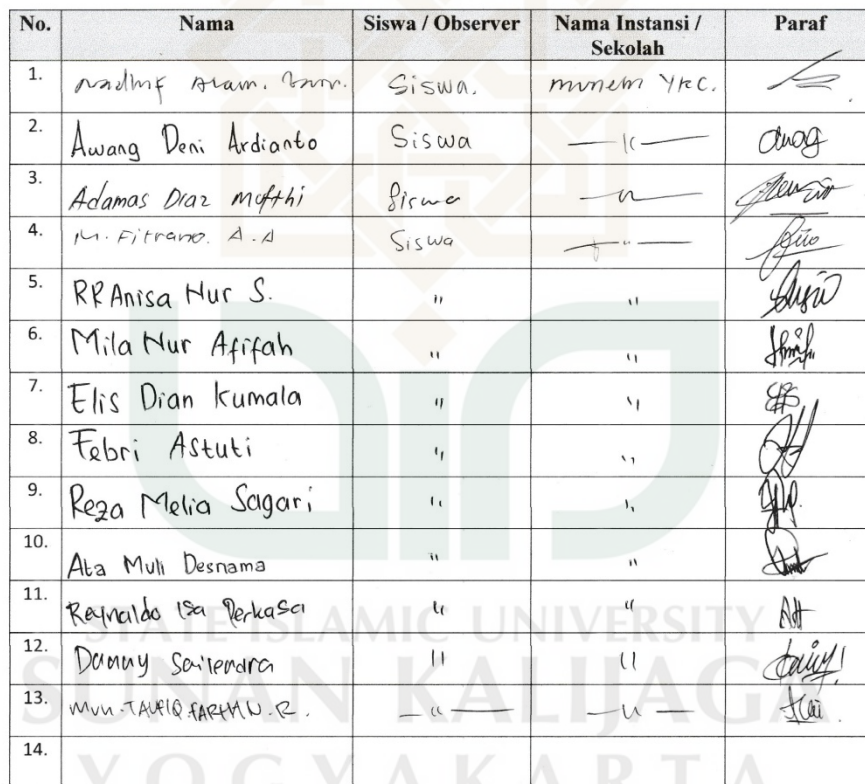 No. Nama Siswa / Observer Nama Instansi / Sekolah Paraf
1. Siswa.
2. Awang Deni Ardianto Siswa — 〃 —
3. Adamas Diaz Mufthi Siswa — 〃 —
4. M. Fitrano. A.A Siswa — 〃 —
5. RR Anisa Nur S. 〃 〃
6. Mila Nur Afifah 〃 〃
7. Elis Dian Kumala 〃 〃
8. Febri Astuti 〃 〃
9. Reza Melia Sagari 〃 〃
10. Ata Muli Desnama 〃 〃
11. Reynaldo Isa Perkasa 〃 〃
12. Danny Sailendra 〃 〃
13. Muh. TAUFIQ 〃 — 〃 —
14.
STATE ISLAMIC UNIVERSITY
SUNAN KALIJAGA
YOGYAKARTA